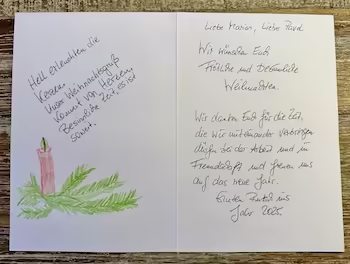 Hell erleuchten die
Kerzen.
Unser Weihnachtsgruß
kommt von Herzen.
Besinnliche Zeit, es ist
soweit.
Liebe Marion, Liebe
Wir wünschen Euch
Fröhliche und Besinnliche
Weihnachten.
Wir danken Euch für die Zeit,
die wir miteinander verbringen
dürfen bei der Arbeit und in
Freundschaft und freuen uns
auf das neue Jahr.
Guten Rutsch ins
Jahr 2025.